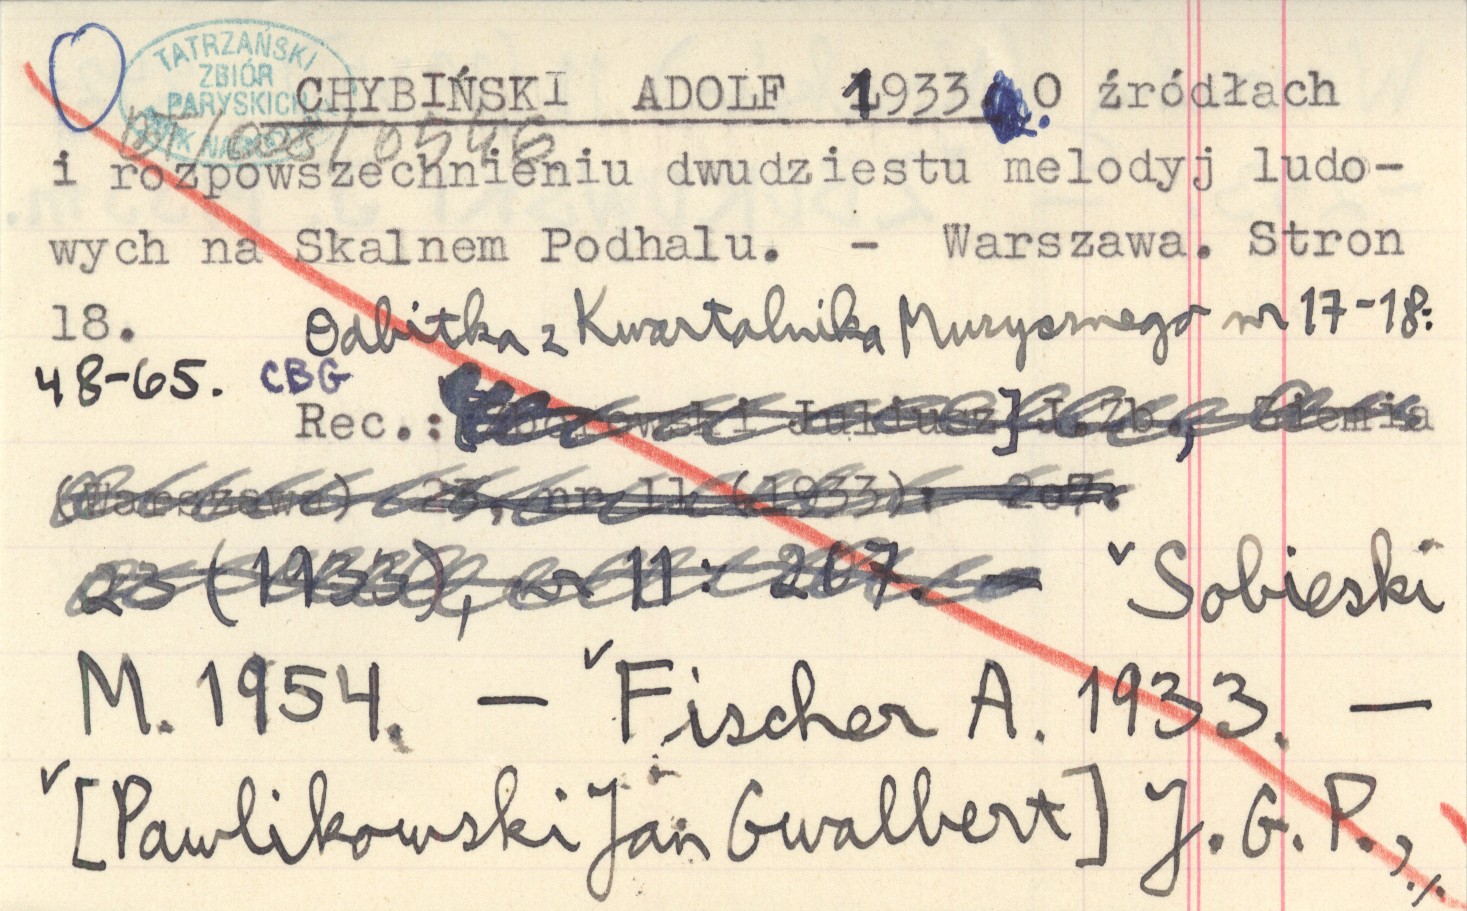 TATRZAŃSKI
ZBIÓR
PARYSKICH
CHYBIŃSKI ADOLF 1933 O źródłach
DT/008/0546
i rozpowszechnieniu dwudziestu melodyj ludo-
wych na Skalnem Podhalu. - Warszawa. Stron
18. Odbitka z Kwartalnika Muzycznego nr 17-18:
48-65. CBG
Rec.: Juliusz] J.Zb., Ziemia
(Warszawa) 23, nr 11 (1933): 267.
23 (1933), nr 11: 267. — Sobieski
M. 1954. — Fischer A. 1933. —
[Pawlikowski Jan Gwalbert] J. G. P.,